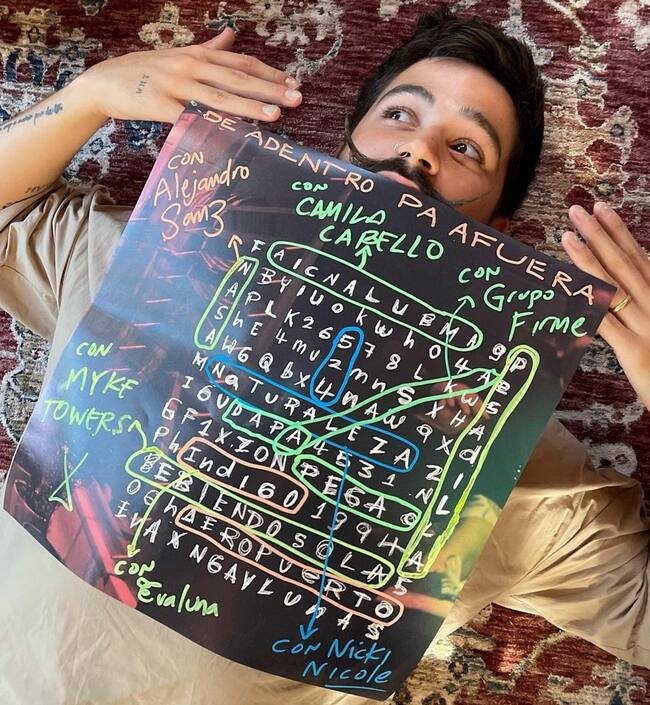 DE ADENTRO PA AFUERA
CON
Alejandro
Sanz
CON
CAMILA
CABELLO
CON
Grupo
Firme
CON
MYKE
TOWERS
F A I C N A L U B M A g P
N B Y I U O K W h O 4 A e
A P L K 2 6 5 7 8 L K W S
S h E 4 m u 2 m n S X H A
A W 6 Q b X 4 n A W Q X d
M N a T U R A L E Z A Z I
I 6 U D A P A 4 5 3 1 N L
6 F 1 X Z O N P E G A O L
P h I n d I 6 O 1 9 9 4 A
B E B I E N D O S O L A S
O G h A E R O P U E R T O
E V A X N G A V L U N A S
CON
Evaluna
CON NICKI
NICOLE
WHY